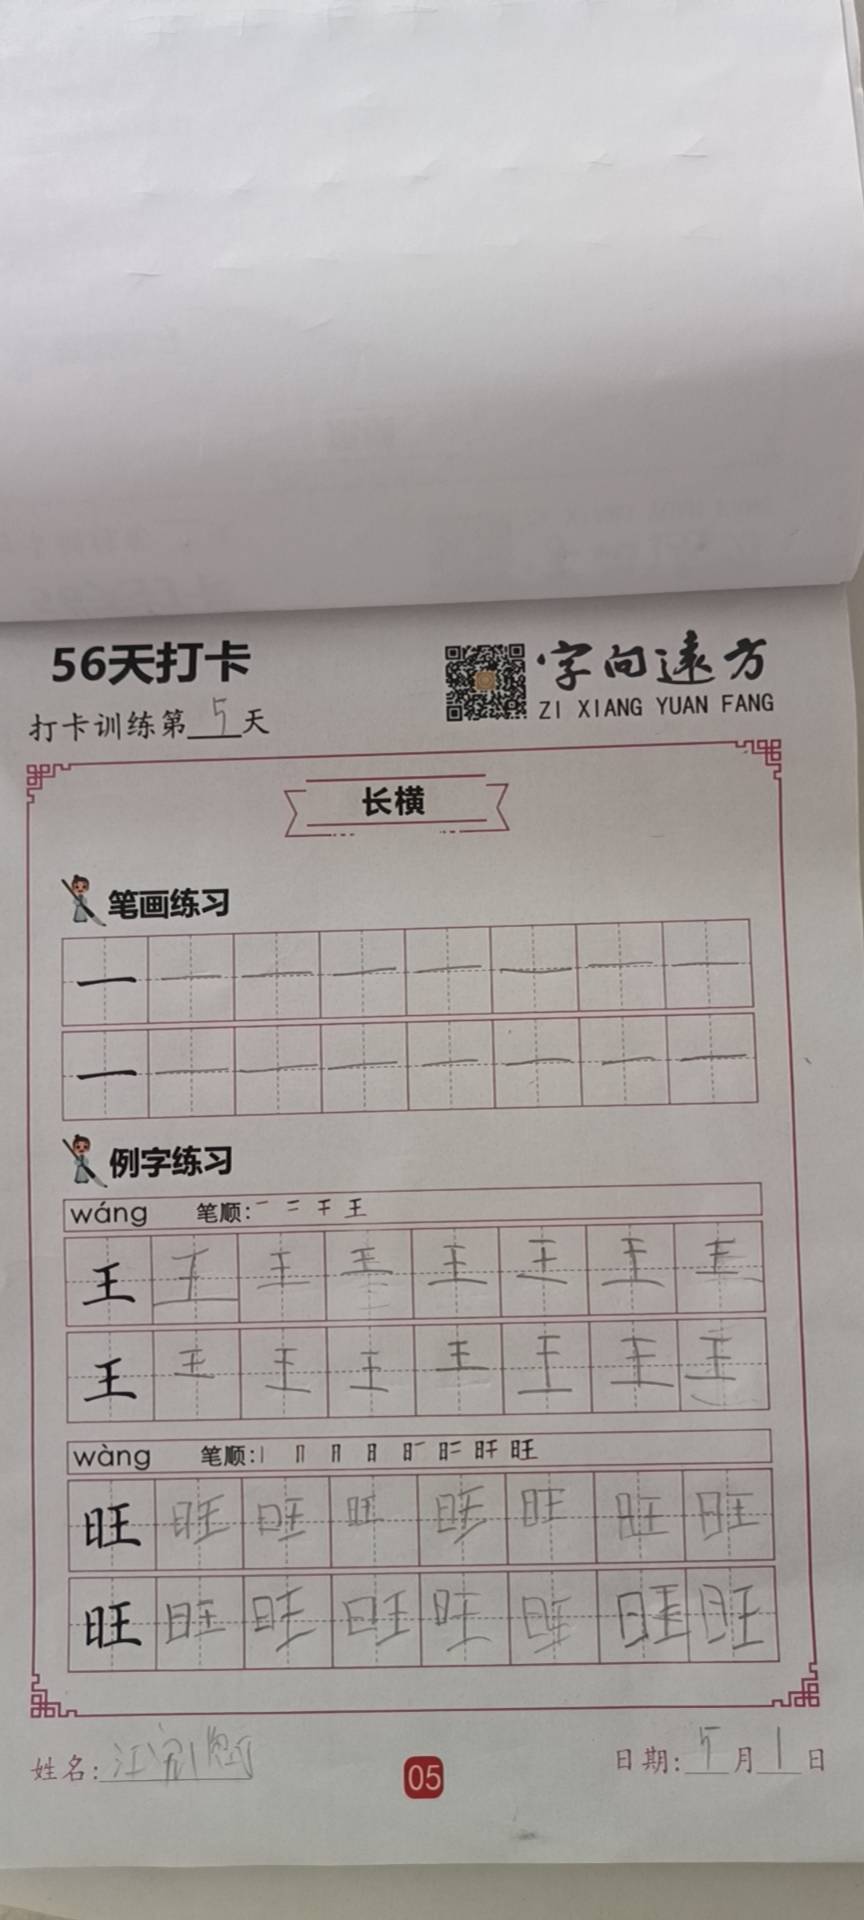 56天打卡
字向远方
ZI XIANG YUAN FANG
打卡训练第5天
长横
笔画练习
一 一 一 一 一 一 一 一
一 一 一 一 一 一 一 一
例字练习
wáng 笔顺: 一 二 干 王
王 王 王 王 王 王 王 王
王 王 王 王 王 王 王 王
wàng 笔顺: 丨 冂 月 日 日一 日二 日干 旺
旺 旺 旺 旺 旺 旺 旺 旺
旺 旺 旺 旺 旺 旺 旺 旺
姓名: 江
05
日期: 5月1日